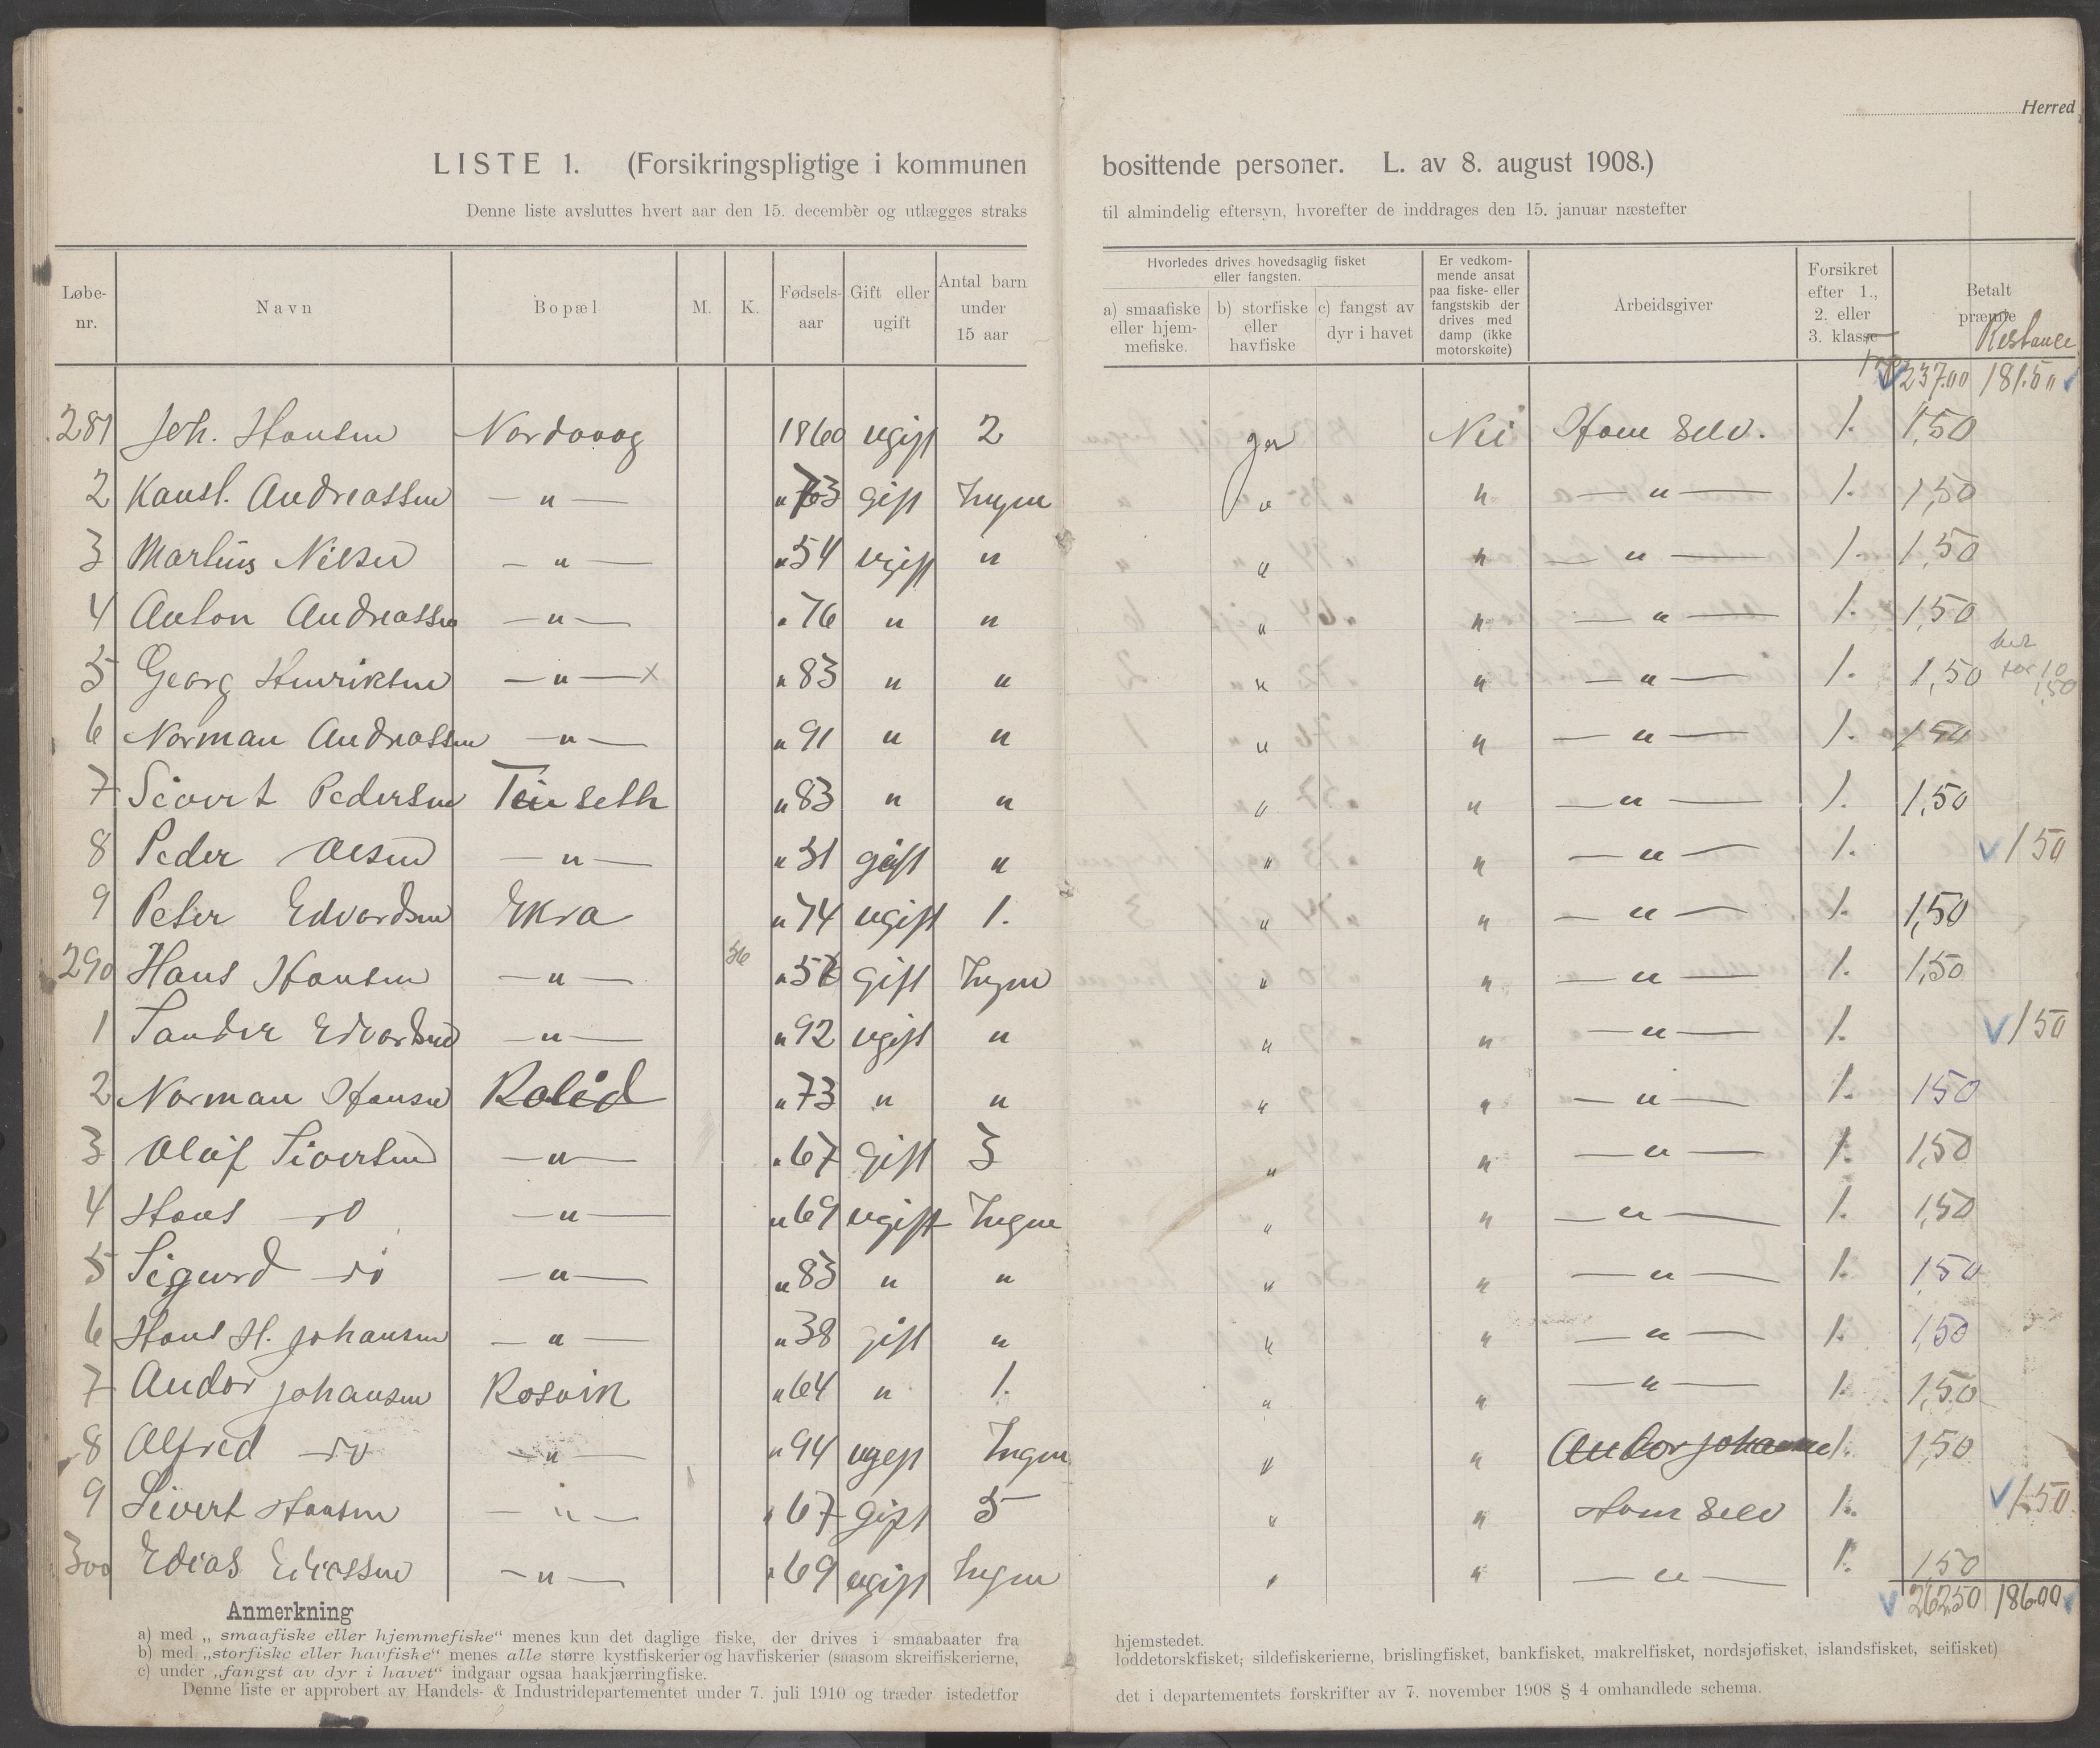 Herred
LISTE 1. (Forsikringspligtige i kommunen bosittende personer. L. av 8. august 1908.)
Denne liste avsluttes hvert aar den 15. december og utlægges straks til almindelig eftersyn, hvorefter de inddrages den 15. januar næstefter
Løbe-nr. Navn Bopæl M. K. Fødsels-aar Gift eller ugift Antal barn under 15 aar Hvorledes drives hovedsaglig fisket eller fangsten. a) smaafiske eller hjem-mefiske. b) storfiske eller havfiske c) fangst av dyr i havet Er vedkom-mende ansat paa fiske- eller fangstskib der drives med damp (ikke motorskøite) Arbeidsgiver Forsikret efter 1., 2. eller 3. klasse Betalt præmie Restance
237.00 181.50
281 Joh. Hansen Nordvaag 1860 ugift 2 ja Nei Ham Selv. 1. 1,50
2 Kansl. Andreassen — " — " 73 gift Ingen " " — " — 1. 1,50
3 Martius Nilsen — " — " 54 ugift " " " — " — 1. 1,50
4 Anton Andreassen — " — " 76 " " " " — " — 1. 1,50
5 Georg Henriksen — " — x " 83 " " " " — " — 1. 1,50
6 Norman Andreassen — " — " 91 " " " " — " — 1. 1,50
7 Sivert Pedersen Tinseth " 83 " " " " — " — 1. 1,50
8 Peder Olsen — " — " 51 gift " " " — " — 1. 150
9 Peter Edvardsen Ekra " 74 ugift 1. " " — " — 1. 1,50
290 Hans Hansen — " — 56 " 57 gift Ingen " " — " — 1. 1,50
1 Sander Edvardsen — " — " 92 ugift " " " — " — 1. 150
2 Norman Hansen Rolid " 73 " " " " — " — 1. 150
3 Olaf Sivertsen — " — " 67 gift 3 " " — " — 1. 1,50
4 Hans —ro — " — " 69 ugift Ingen " " — " — 1. 1,50
5 Sigurd —ro — " — " 83 " " " " — " — 1. 1,50
6 Hans H. Johansen — " — " 38 gift " " " — " — 1. 1,50
7 Andor Johansen Rosvik " 64 " 1. " " — " — 1. 1,50
8 Alfred —ro — " — " 94 ugift Ingen " " Andor Johansen 1. 1,50
9 Sivert Hansen — " — " 67 gift 5 " " Ham Selv 1. 1.50
300 Edias Eliassen — " — " 69 ugift Ingen " " — " — 1. 1,50
262.50 186.00
Anmerkning
a) med „smaafiske eller hjemmefiske“ menes kun det daglige fiske, der drives i smaabaater fra hjemstedet.
b) med „storfiske eller havfiske“ menes alle større kystfiskerier og havfiskerier (saasom skreifiskerierne, loddetorskfisket, sildefiskerierne, brislingfisket, bankfisket, makrelfisket, nordsjøfisket, islandsfisket, seifisket)
c) under „fangst av dyr i havet“ indgaar ogsaa haakjærringfiske.
Denne liste er approbert av Handels- & Industridepartementet under 7. juli 1910 og træder istedetfor det i departementets forskrifter av 7. november 1908 § 4 omhandlede schema.